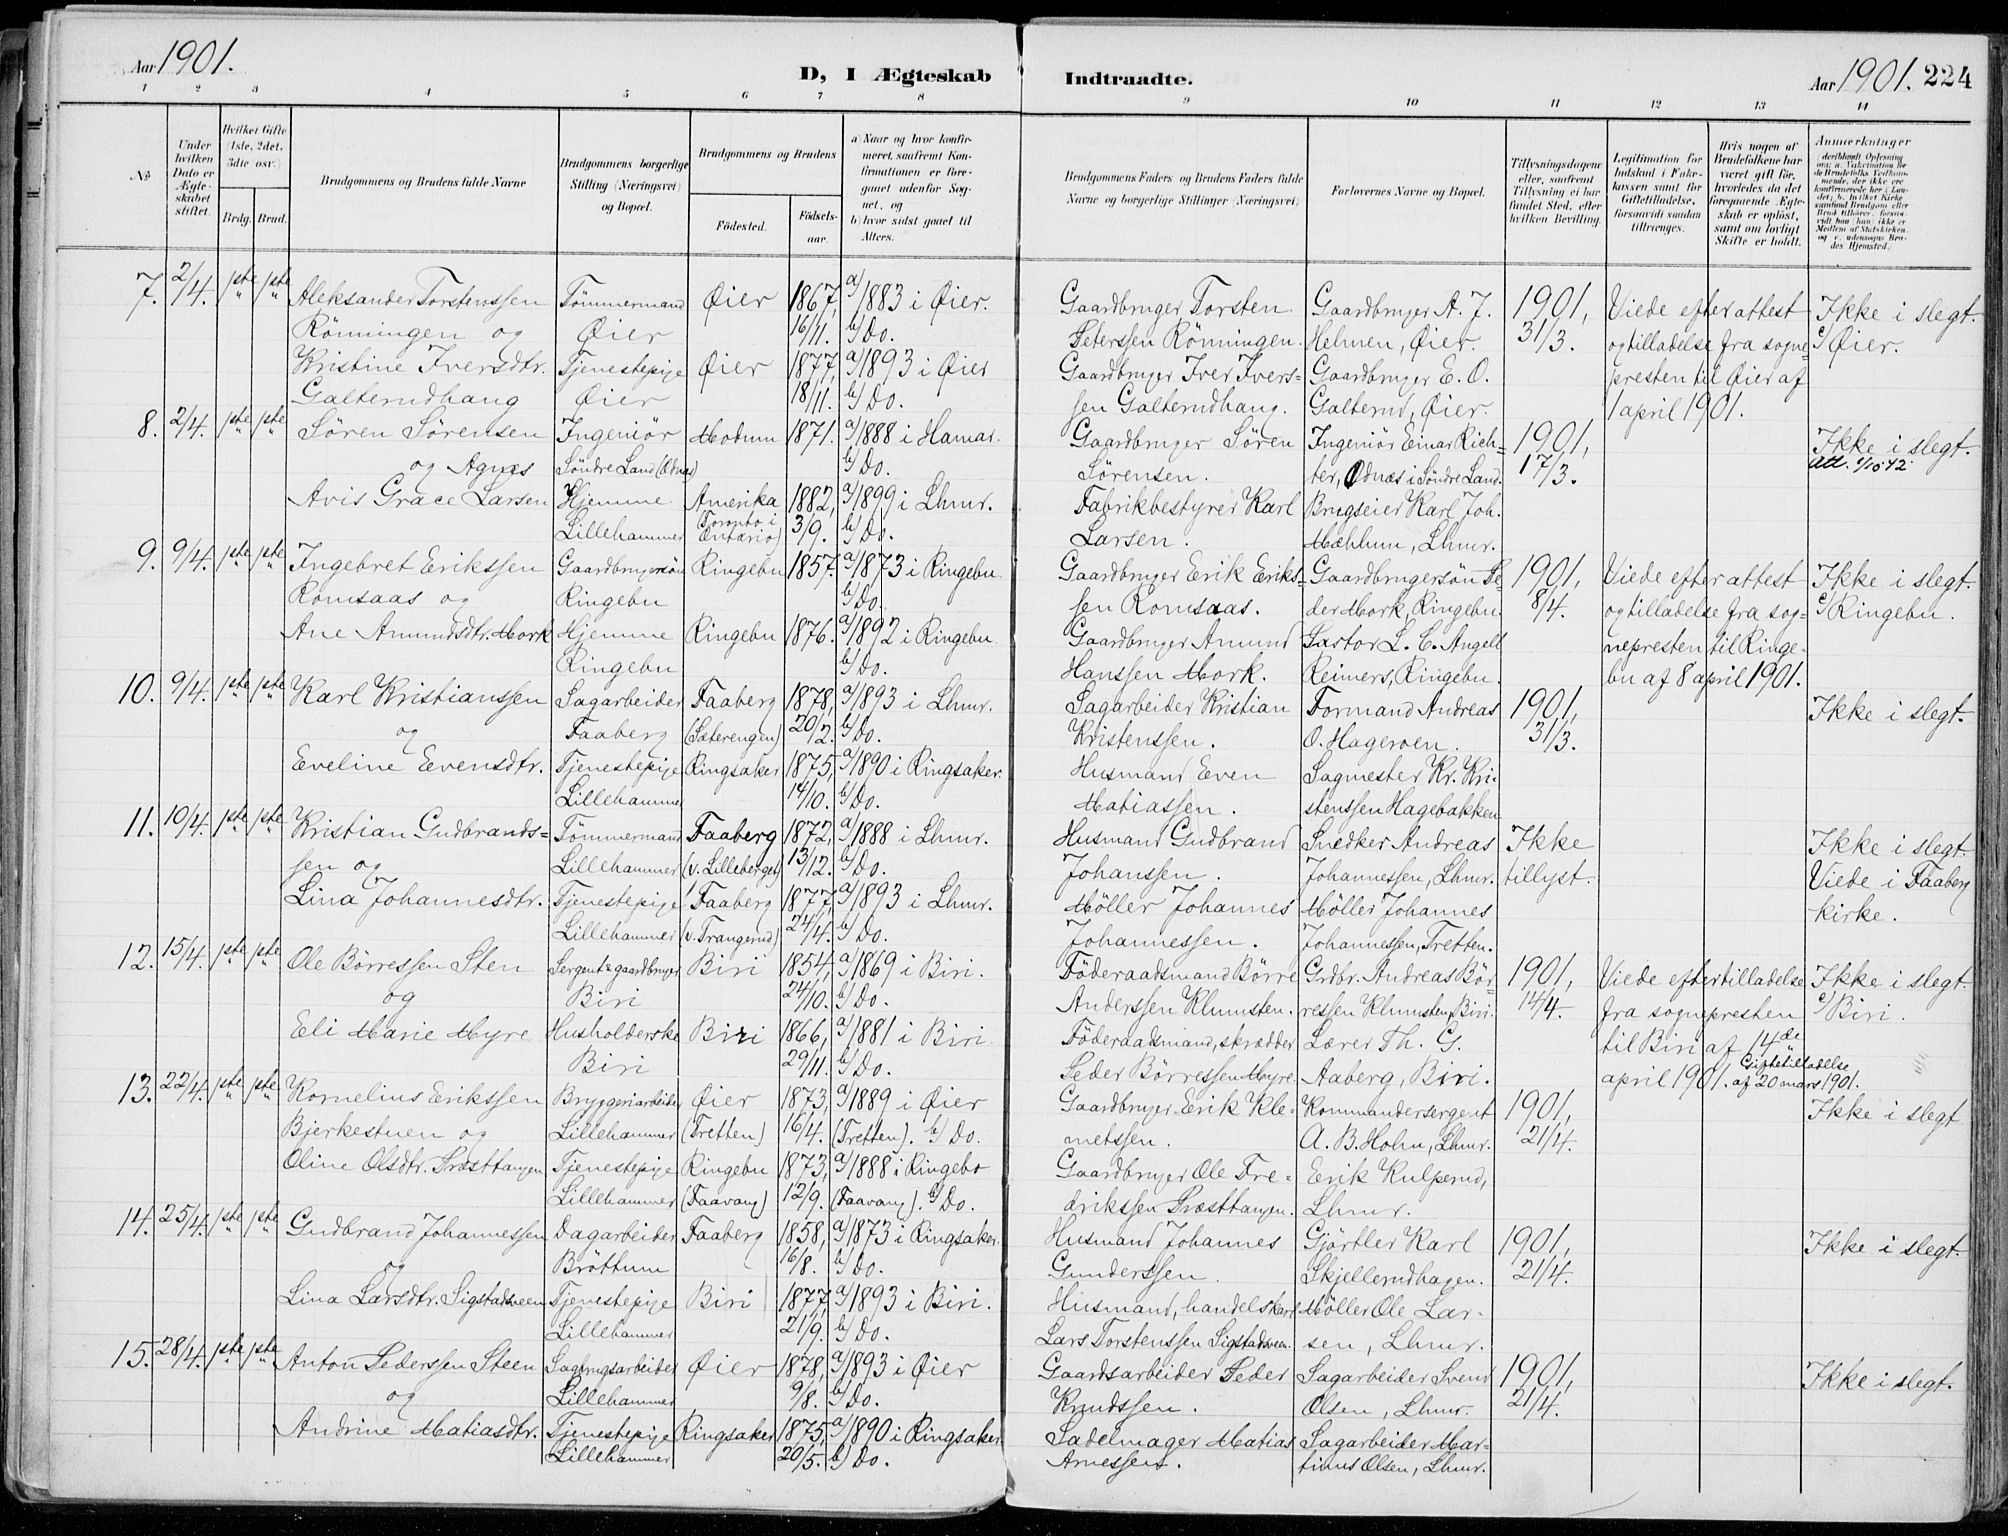 Aar 1901.
D, I Ægteskab Indtraadte.
Aar 1901. 224
1 2 3 4 5 6 7 8 9 10 11 12 13 14
No
Under hvilken Dato er Ægteskabet stiftet.
Hvilket Gifte (1ste, 2det, 3die osv.)
Brdg. Brud.
Brudgommens og Brudens fulde Navne
Brudgommens borgerlige Stilling (Næringsvei) og Bopæl.
Brudgommens og Brudens
Fødested. Fødselsaar.
a) Naar og hvor konfirmeret, saafremt Konfirmationen er foregaaet udenfor Sognet, og
b) hvor sidst gaaet til Alters.
Brudgommens Faders og Brudens Faders fulde Navne og borgerlige Stillinger (Næringsvei)
Forlovernes Navne og Bopæl.
Tillysningsdagene eller, saafremt Tillysning ei har fundet Sted, efter hvilken Bevilling.
Legitimation for Indskud i Enkekassen samt for Giftetilladelse, forsaavidt saadan tiltrænges.
Hvis nogen af Brudefolkene har været gift før, hvorledes da det foregaaende Ægteskab er opløst, samt om lovligt Skifte er holdt.
Anmærkninger
7. 2/4. 1ste 1ste Aleksander Torstenssen Tømmermand Øier 1867, a/1883 i Øier. Gaardbruger Torsten Gaardbruger A. J. 1901, Viede efter attest Ikke i slegt.
Rönningen og Øier 16/11. b/Do. Peterssen Rönningen. Helmen, Øier. 31/3. og tilladelse fra sogne- c/ Øier.
Kristine Iversdtr. Tjenestepige Øier 1877, a/1893 i Øier Gaardbruger Iver Ivers- Gaardbruger E. O. presten til Øier af
Galterudhaug Øier 18/11. b/Do. sen Galterudhaug. Galterud, Øier. 1 april 1901.
8. 2/4. 1ste 1ste Sören Sörensen Ingeniør Modum 1871. a/1888 i Hamar. Gaardbruger Sören Ingeniör Einar Rich- 1901, Ikke i slegt.
og Agnes Söndre Land (Odnæs) b/Do. Sörensen. ter, Odnæs i Söndre Land. 17/3.
Avis Grace Larsen Hjemme Amerika 1882, a/1899 i Lhmr. Fabrikbestyrer Karl Brugseier Karl Joh.
Lillehammer (Toronto i Ontario) 3/9. b/Do. Larsen. Mæhlum, Lhmr.
9. 9/4. 1ste 1ste Ingebret Erikssen Gaardbrugersön Ringebu 1857. a/1873 i Ringebu. Gaardbruger Erik Eriks- Gaardbrugersön Pe- 1901, Viede efter attest Ikke i slegt.
Romsaas og Ringebu b/Do. sen Romsaas. der Mork, Ringebu. 8/4. og tilladelse fra sog- c/ Ringebu.
Ane Amundsdtr. Mork Hjemme Ringebu 1876. a/1892 i Ringebu. Gaardbruger Amund Pastor L. C. Angell nepresten til Ringe-
Ringebu b/Do. Hanssen Mork. Reimers, Ringebu. bu af 8 april 1901.
10. 9/4. 1ste 1ste Karl Kristianssen Sagarbeider Faaberg 1878, a/1893 i Lhmr. Sagarbeider Kristian Formand Andreas 1901, Ikke i slegt.
og Faaberg (Sæterengen) 20/2. b/Do. Kristenssen. O. Hageroen. 31/3.
Eveline Evensdtr. Tjenestepige Ringsaker 1875, a/1890 i Ringsaker. Husmand Even Sagmester Kr. Kri-
Lillehammer 14/10. b/Do. Matiassen. stenssen Hagebakken
11. 10/4. 1ste 1ste Kristian Gudbrands- Tömmermand Faaberg 1872, a/1888 i Lhmr. Husmand Gudbrand Snedker Andreas Ikke Ikke i slegt.
sen og Lillehammer (v. Lilleberget) 13/12. b/Do. Johanssen. Johannessen, Lhmr. tillyst. Viede i Faaberg
Lina Johannesdtr. Tjenestepige Faaberg 1877, a/1893 i Lhmr. Möller Johannes Möller Johannes kirke.
Lillehammer (v. Trangerud) 24/4. b/Do. Johannessen. Johannessen, Tretten.
12. 15/4. 1ste 1ste Ole Börressen Sten Sergent & gaardbruger Biri 1854, a/1869 i Biri. Föderaadsmand Börre Grdbr. Andreas Bör- 1901, Viede efter tilladelse Ikke i slegt.
og Biri 24/10. b/Do. Anderssen Klumsten. ressen Klumsten, Biri. 14/4. fra sognepresten c/ Biri.
Eli Marie Myre Husholderske Biri 1866, a/1881 i Biri. Föderaadsmand, skrædder Lærer Th. G. til Biri af 14de
Biri 29/11. b/Do. Peder Börressen Myre. Aaberg, Biri. april 1901. Giftetilladelse af 20 mars 1901.
13. 22/4. 1ste 1ste Kornelius Erikssen Bryggeriarbeider Øier 1873, a/1889 i Øier Gaardbruger Erik Kle- Kommandersergent 1901, Ikke i slegt
Bjerkestuen og Lillehammer (Tretten) 16/4. (Tretten). b/Do. metssen. A. B. Holm, Lhmr. 21/4.
Oline Olsdtr. Præsttangen Tjenestepige Ringebu 1873, a/1888 i Ringebo Gaardbruger Ole Fre- Erik Kulperud,
Lillehammer (Faavang) 12/9. (Faavang). b/Do. drikssen Præsttangen. Lhmr.
14. 25/4. 1ste 1ste Gudbrand Johannessen Dagarbeider Faaberg 1858, a/1873 i Ringsaker. Husmand Johannes Gjörtler Karl 1901, Ikke i slegt.
og Bröttum 16/8. b/Do. Gunderssen. Skjellerudhagen. 21/4.
Lina Larsdtr. Sigstadsveen Tjenestepige Biri 1877, a/1893 i Biri. Husmand, handelskarl Möller Ole Lar-
Lillehammer 21/9. b/Do. Lars Torstenssen Sigstadsveen. sen, Lhmr.
15. 28/4. 1ste 1ste Anton Pederssen Steen Sagbrugsarbeider Øier 1878, a/1893 i Øier Gaardsarbeider Peder Sagarbeider Svend 1901, Ikke i slegt.
og Lillehammer 9/8. b/Do. Knudssen. Olsen, Lhmr. 21/4.
Andrine Matiasdtr. Tjenestepige Ringsaker 1875, a/1890 i Ringsaker Sadelmager Matias Sagarbeider Mar-
Lillehammer 20/5. b/Do. Arnessen. tinus Olsen, Lhmr.